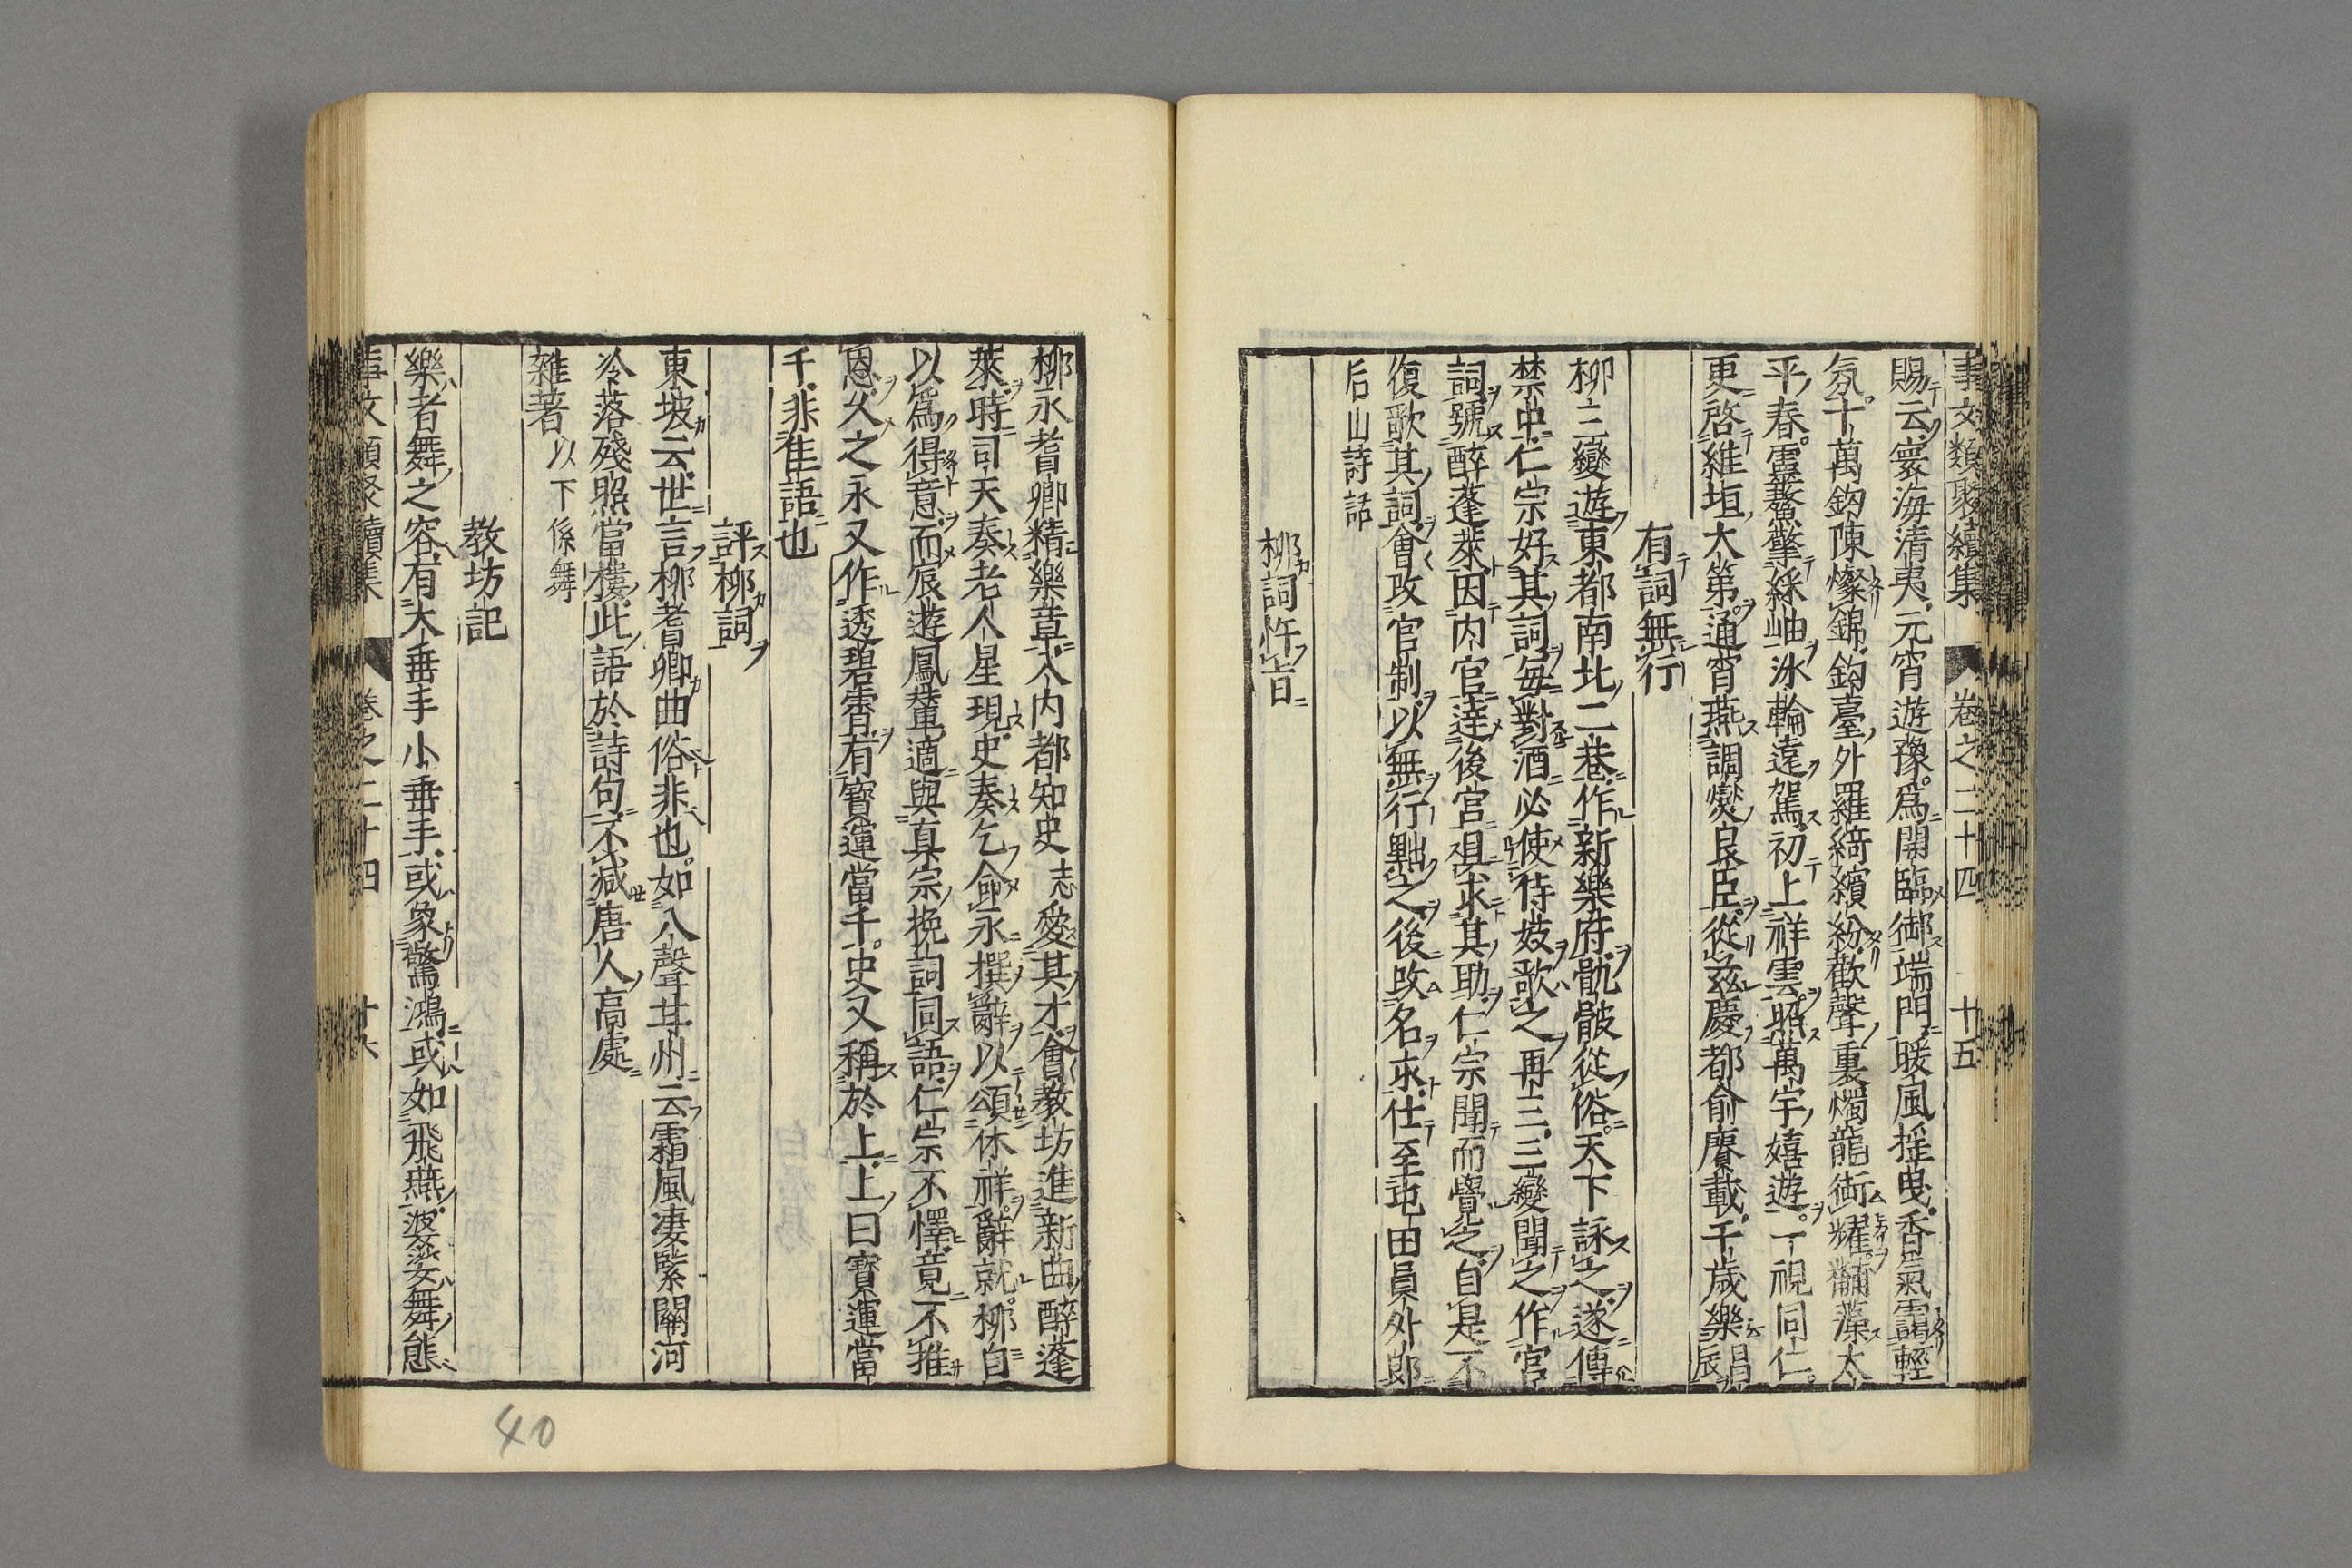 事文類聚續集 卷之二十四 十五
賜云寰海清夷元宵遊豫爲開臨御端門暖風揺曳香氣靄輕
氛十萬鈎陳燦錦鈎臺外羅綺繽紛歡聲裏燭龍銜耀黼藻太
平春靈鼇擎綵岫氷輪遠駕初上祥雲照萬宇嬉遊一視同仁
更啓維垣大第通宵燕調爕良臣從兹慶都俞賡載千歳樂昌辰
有詞無行
柳三變遊東都南北二巷作新樂府骫骳從俗天下詠之遂傳
禁中仁宗好其詞毎對酒必使侍妓歌之再三三變聞之作宮
詞號醉蓬萊因内官達後宮且求其助仁宗聞而覺之自是不
復歌其詞會改官制以無行黜之後改名永仕至屯田員外郎
后山詩話
柳詞忤旨
柳永耆卿精樂章入内都知史志愛其才會教坊進新曲醉蓬
萊時司天奏老人星現史奏乞命永撰辭以頌休祥辭就柳自
以爲得意而宸遊鳳輦適與真宗挽詞同語仁宗不懌竟不推
恩久之永又作透碧霄有寳運當千史又稱於上上曰寳運當
千非隹語也
評柳詞
東坡云世言柳耆卿曲俗非也如八聲甘州云霜風凄緊關河
冷落殘照當樓此語於詩句不减唐人高處
雜著 以下係舞
教坊記
樂者舞之容有大垂手小垂手或象驚鴻或如飛燕婆娑舞態
事文類聚續集 卷之二十四 十六
40